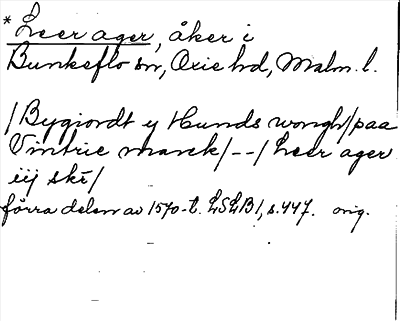 *Leer ager, åker i
Bunkeflo sn, Oxie hd, Malm. l.
/Bygiordt y Hunds wongh/paa
Vintrie marck/--/Leer ager
iij skr/
förra delen av 1570-t. LSLB 1, s. 447. orig.